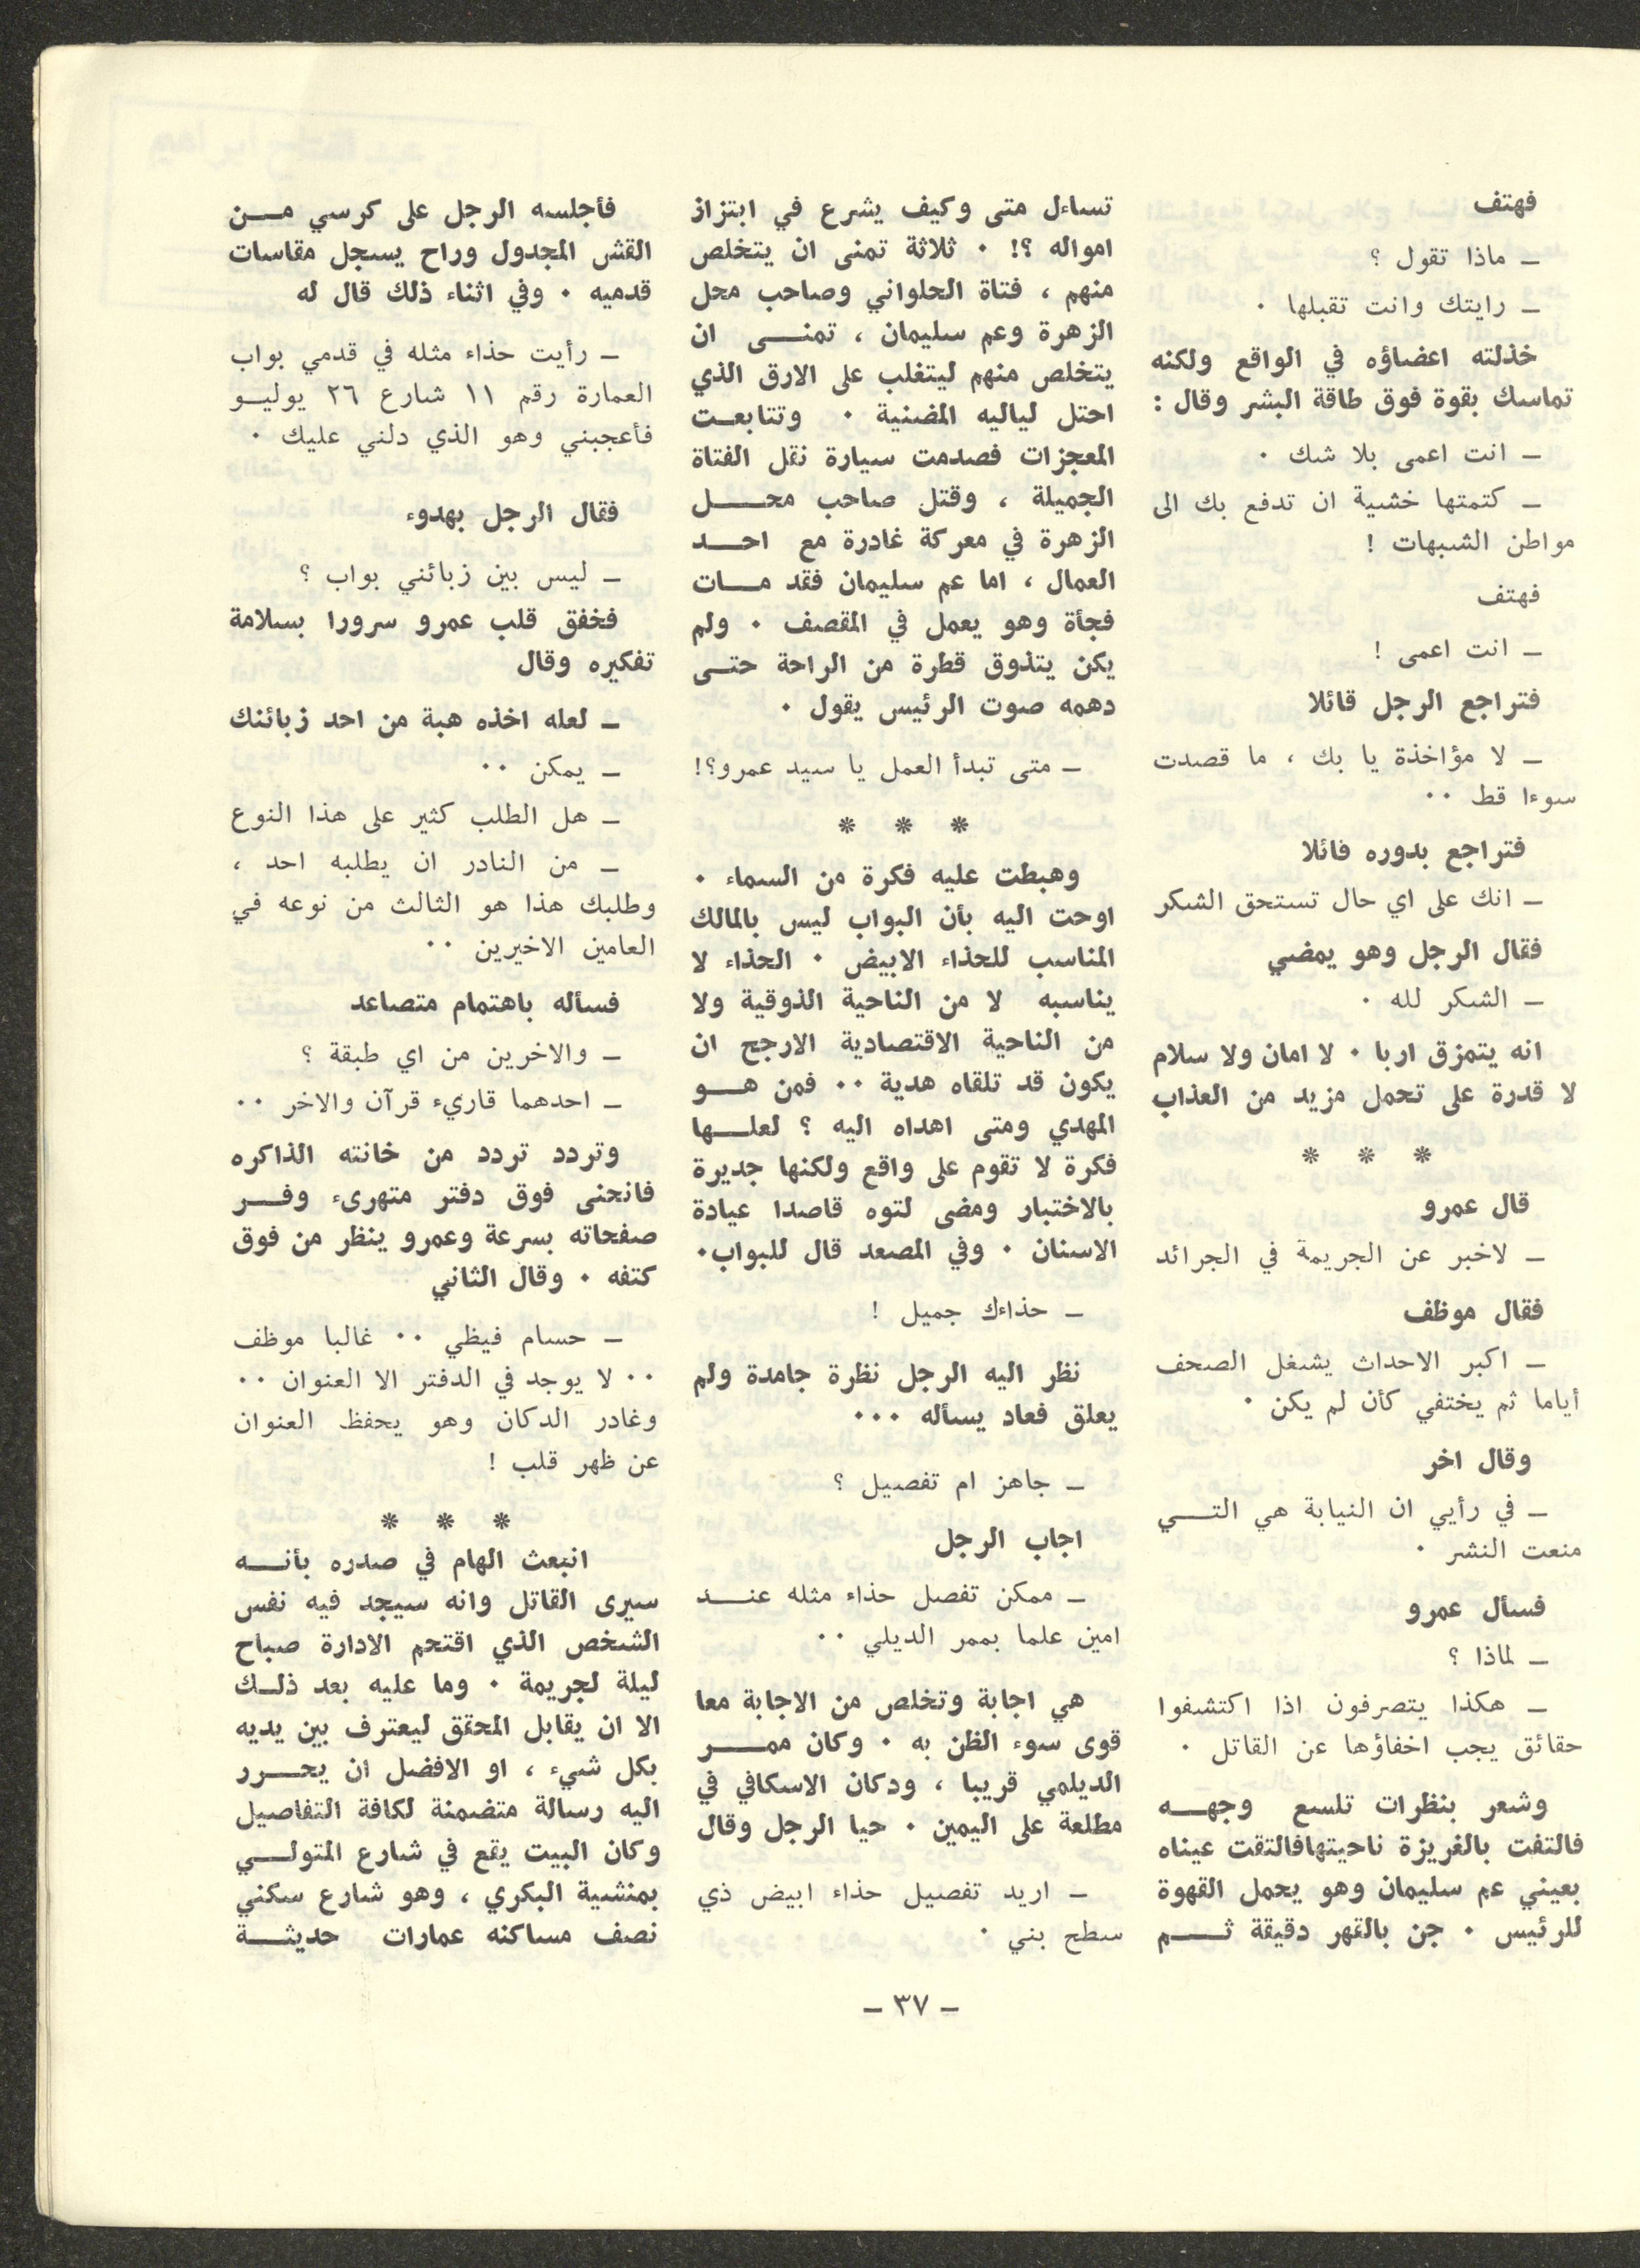 فهتف
ـ ماذا تقول ؟
ـ رايتك وانت تقبلها ٠
خذلته اعضاؤه في الواقع ولكنه
تماسك بقوة فوق طاقة البشر وقال :
ـ انت اعمى بلا شك ٠
ـ كتمتها خشية ان تدفع بك الى
مواطن الشبهات !
فهتف
ـ انت اعمى !
فتراجع الرجل قائلا
ـ لا مؤاخذة يا بك ، ما قصدت
سوءا قط ٠٠
فتراجع بدوره فائلا
ـ انك على اي حال تستحق الشكر
فقال الرجل وهو يمضي
ـ الشكر لله ٠
انه يتمزق اربا ٠ لا امان ولا سلام
لا قدرة على تحمل مزيد من العذاب
* * *
قال عمرو
ـ لاخبر عن الجريمة في الجرائد
فقال موظف
ـ اكبر الاحداث يشغل الصحف
أياما ثم يختفي كأن لم يكن ٠
وقال اخر
ـ في رأيي ان النيابة هي التــي
منعت النشر ٠
فسأل عمرو
ـ لماذا ؟
ـ هكذا يتصرفون اذا اكتشفوا
حقائق يجب اخفاؤها عن القاتل ٠
وشعر بنظرات تلسع وجهــه
فالتفت بالغريزة ناحيتهافالتقت عيناه
بعيني عم سليمان وهو يحمل القهوة
للرئيس ٠ جن بالقهر دقيقة ثــم
تساءل متى وكيف يشرع في ابتزاز
امواله ؟! ٠ ثلاثة تمنى ان يتخلص
منهم ، فتاة الحلواني وصاحب محل
الزهرة وعم سليمان ، تمنــى ان
يتخلص منهم ليتغلب على الارق الذي
احتل لياليه المضنية ٠ وتتابعت
المعجزات فصدمت سيارة نقل الفتاة
الجميلة ، وقتل صاحب محــل
الزهرة في معركة غادرة مع احــد
العمال ، اما عم سليمان فقد مــات
فجأة وهو يعمل في المقصف ٠ ولم
يكن يتذوق قطرة من الراحة حتــى
دهمه صوت الرئيس يقول ٠
ـ متى تبدأ العمل يا سيد عمرو؟!
* * *
وهبطت عليه فكرة من السماء ٠
اوحت اليه بأن البواب ليس بالمالك
المناسب للحذاء الابيض ٠ الحذاء لا
يناسبه لا من الناحية الذوقية ولا
من الناحية الاقتصادية الارجح ان
يكون قد تلقاه هدية ٠٠ فمن هــو
المهدي ومتى اهداه اليه ؟ لعلــها
فكرة لا تقوم على واقع ولكنها جديرة
بالاختبار ومضى لتوه قاصدا عيادة
الاسنان ٠ وفي المصعد قال للبواب٠
ـ حذاءك جميل !
نظر اليه الرجل نظرة جامدة ولم
يعلق فعاد يسأله ٠٠٠
ـ جاهز ام تفصيل ؟
اجاب الرجل
ـ ممكن تفصل حذاء مثله عنــد
امين علما بممر الديلي ٠٠
هي اجابة وتخلص من الاجابة معا
قوى سوء الظن به ٠ وكان ممــر
الديلمي قريبا ، ودكان الاسكافي في
مطلعة على اليمين ٠ حيا الرجل وقال
ـ اريد تفصيل حذاء ابيض ذي
سطح بني ٠
فأجلسه الرجل على كرسي مــن
القش المجدول وراح يسجل مقاسات
قدميه ٠ وفي اثناء ذلك قال له
ـ رأيت حذاء مثله في قدمي بواب
العمارة رقم ١١ شارع ٢٦ يوليــو
فأعجبني وهو الذي دلني عليك ٠
فقال الرجل بهدوء
ـ ليس بين زبائني بواب ؟
فخفق قلب عمرو سرورا بسلامة
تفكيره وقال
ـ لعله اخذه هبة من احد زبائنك
ـ يمكن ٠٠
ـ هل الطلب كثير على هذا النوع
ـ من النادر ان يطلبه احد ،
وطلبك هذا هو الثالث من نوعه في
العامين الاخيرين ٠٠
فسأله باهتمام متصاعد
ـ والاخرين من اي طبقة ؟
ـ احدهما قاريء قرآن والاخر ٠٠
وتردد تردد من خانته الذاكره
فانحنى فوق دفتر متهرىء وفــر
صفحاته بسرعة وعمرو ينظر من فوق
كتفه ٠ وقال الثاني
ـ حسام فيظي ٠٠ غالبا موظف
٠٠ لا يوجد في الدفتر الا العنوان ٠٠
وغادر الدكان وهو يحفظ العنوان
عن ظهر قلب !
* * *
انبعث الهام في صدره بأنــه
سيرى القاتل وانه سيجد فيه نفس
الشخص الذي اقتحم الادارة صباح
ليلة لجريمة ٠ وما عليه بعد ذلــك
الا ان يقابل المحقق ليعترف بين يديه
بكل شيء ، او الافضل ان يحــرر
اليه رسالة متضمنة لكافة التفاصيل
وكان البيت يقع في شارع المتولــي
بمنشية البكري ، وهو شارع سكني
نصف مساكنه عمارات حديثــة
ـ ٣٧ ـ